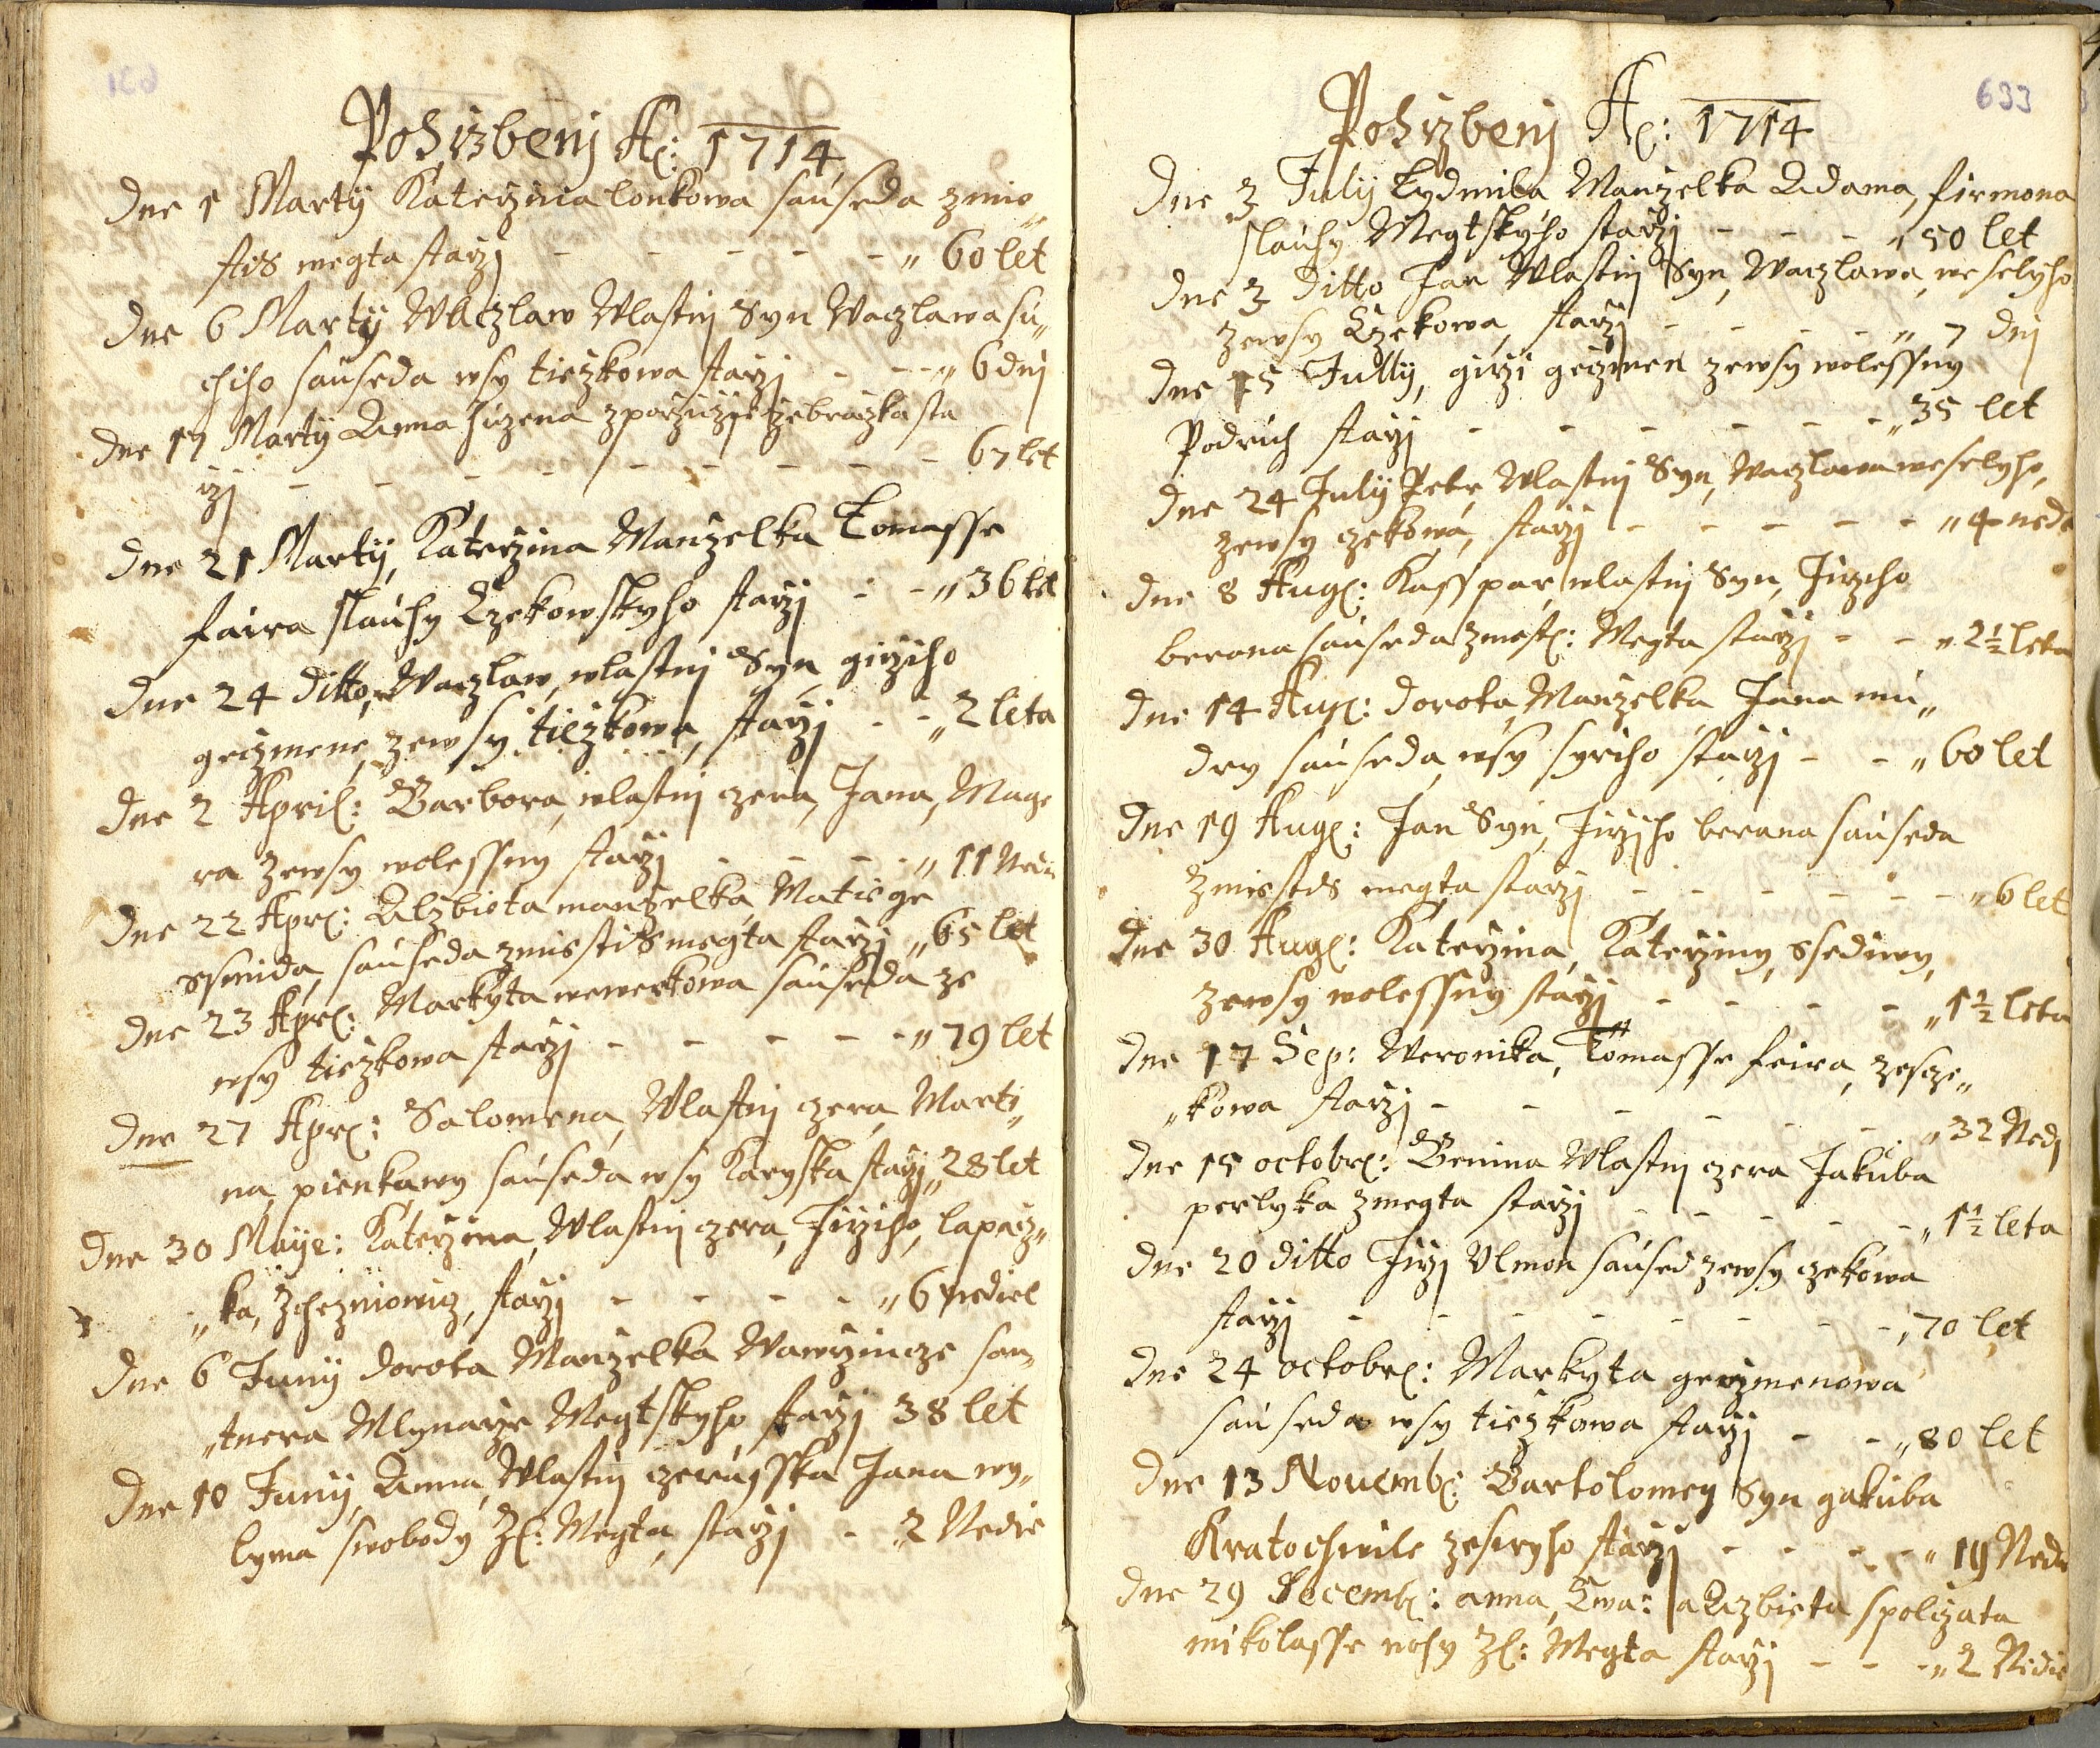 Pohrzbenj A: 1714
Dne 1 Martÿ Katerzina lonkowa sauseda zmie„
stis megta starzj - - - - - „ 60 let
Dne 6 Martÿ Waczlaw Wlastnj Syn Waczlawa su„
chiho sauseda wsy tieczkowa starzj - - - „ 6 dnj
Dne 17 Martÿ Anna huzena zebraczka sta
rzj - - - - - - - - 67 let
Dne 21 Martÿ, Katerzina Manzelka Tomasse
faira slauhy Czekowskyho starzj - - „ 36 let
Dne 24 ditto, Waczlaw, wlastnj Syn girziho
geczmene, zewsy tieczkowa, starzj - - „ 2 leta
Dne 2 April: Barbora, wlastnj czera, Jana, Mage
ra zewsy wolessny starzj - - - - „ 11 Nedi
Dne 22 Apr: Alzbieta manzelka Matiege
Ssmida, sauseda zmiestis megta starzj „ 65 let
Dne 23 Apr: Markyta wewerkowa sauseda ze
wsy tieczkowa starzj - - - - - „ 79 let
Dne 27 Apr: Salomena, Wlastnj czera, Marti„
na, pienkawy sauseda wsy Karyska starzj „ 28 let
Dne 30 Maye: Katerzina, Wlastnj czera, Jirziho, lapacz„
„ka, starzj - - - - „ 6 nediel
Dne 6 Junÿ Dorota Manzelka Wawrzincze san„
„tnera Mlynarze Megtskyho starzj 38 let
Dne 10 Junÿ, Anna, Wlastnj czerusska Jana wy„
lyma swobody Z: Megta, starzj - „ 2 Nedie
633
Pohrzbenj A: 1714
Dne 3 Julÿ Lydmila Manzelka Adama, firmona
slauhy Megtskyho starzj - - - „ 50 let
Dne 3 ditto Jan Wlastnj Syn, Waczlawa, weselyho
zewsy Czekowa, starzj - - - - „ 7 dnj
Dne 15 Jullÿ, girzi geczmen zewsy wolessny
Podruh starzj - - - - - - „ 35 let
Dne 24 Julÿ Petr Wlastnj Syn, Waczlawa weselyho,
zewsy czekowa, starzj - - - - - „ 4 nede
Dne 8 Aug: Kasspar, wlastnj Syn, Jirziho
berana sauseda zmest: Megta starzj - - „ 2½ leta
Dne 14 Aug: Dorota, Manzelka Jana mu„
dry sauseda, wsy syriho starzj - - „ 60 let
Dne 19 Aug: Jan Syn, Jirziho berana sauseda
zmiestis megta starzj - - - - - - „ 6 let
Dne 30 Aug: Katerzina, Katerziny, Ssediwy,
zewsy wolessny starzj - - - - „ 1½ leta
Dne 17 Sep: Weronika, Tomasse feira, zescze„
„kowa starzj - - - - - - „ 32 Nedj
Dne 15 octobr: Benina Wlastnj czera Jakuba
perlyka zmegta starzj - - - - - „ 1½ leta
Dne 20 ditto Jirzj Ulmon saused zewsy czekowa
starzj - - - - - - - „ 70 let
Dne 24 octobr: Markyta geczmenowa
sauseda wsy tieczkowa starzj - - „ 80 let
Dne 13 Nouemb: Bartolomeg Syn gakuba
Kratochwile zesiryho starzj - - - - „ 19 Nede
Dne 29 Decemb: anna, Ewa: a Alzbieta spoliczata
mikolasse nohy Z: Megta starzj - - - „ 2 Nedie